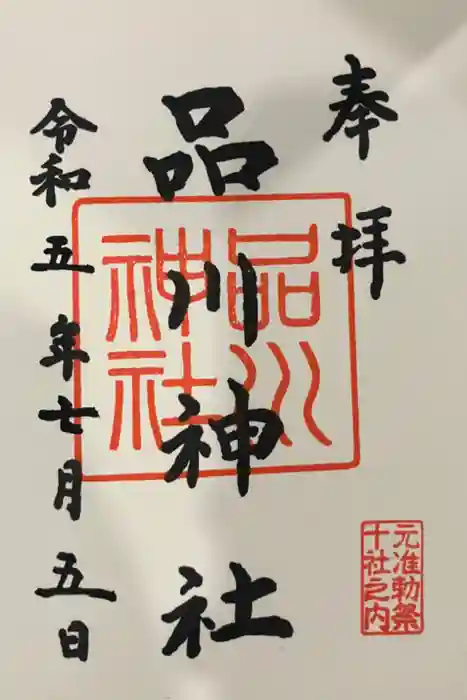 奉拝
品川神社
品川
神社
元准勅祭
十社之内
令和五年七月五日